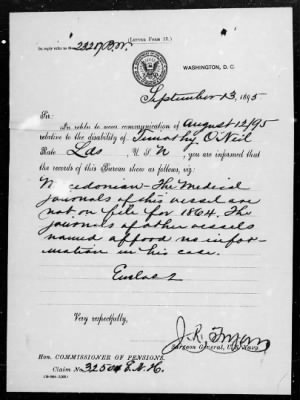 (LETTER FORM 12.)
In reply refer to No.
WASHINGTON, D. C.
September 13, 1895
Sir:
In reply to your communication of August 12/95
relative to the disability of Timothy O'Neil
Rate Lds, U. S. N, you are informed that
the records of this Bureau show as follows, viz:
Macedonian—The Medical
journals of this vessel are
not on file for 1864. The
journals of other vessels
named afford no infor-
mation in his case.
Very respectfully,
J. R.
Surgeon General, U. S. Navy
Hon. COMMISSIONER OF PENSIONS.
Claim No. 32504